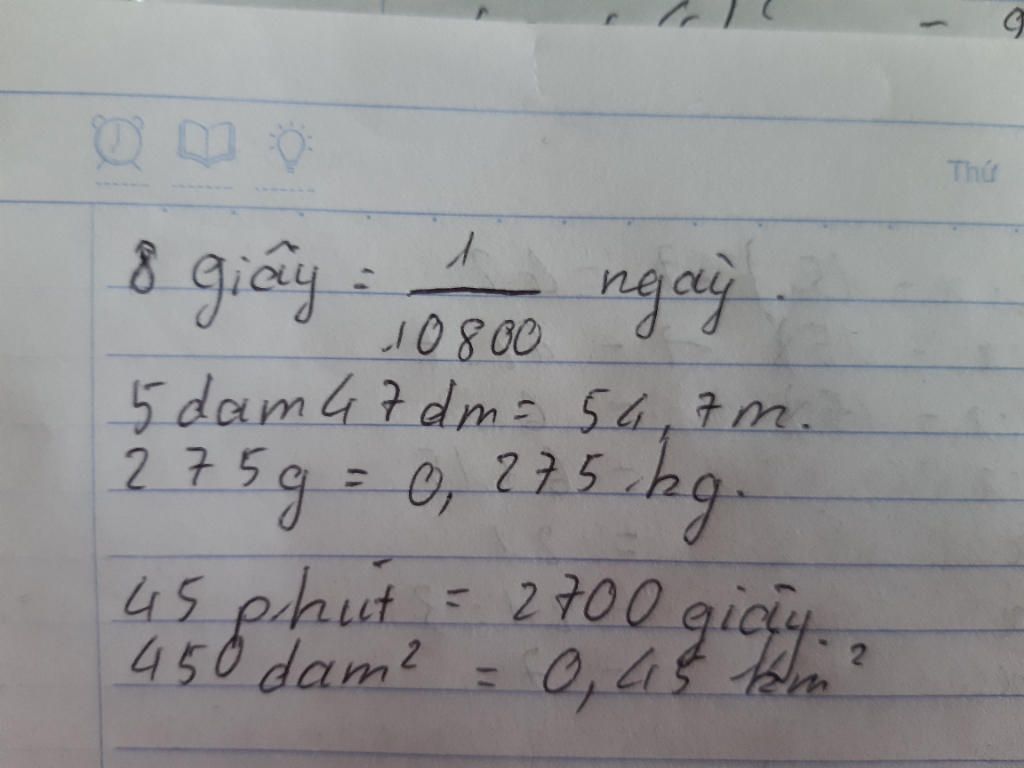 Thứ
8 giây = 1/10800 ngày.
5 dam 47 dm = 54,7m.
275g = 0,275 kg.
45 phút = 2700 giây.
450 dam² = 0,45 km²